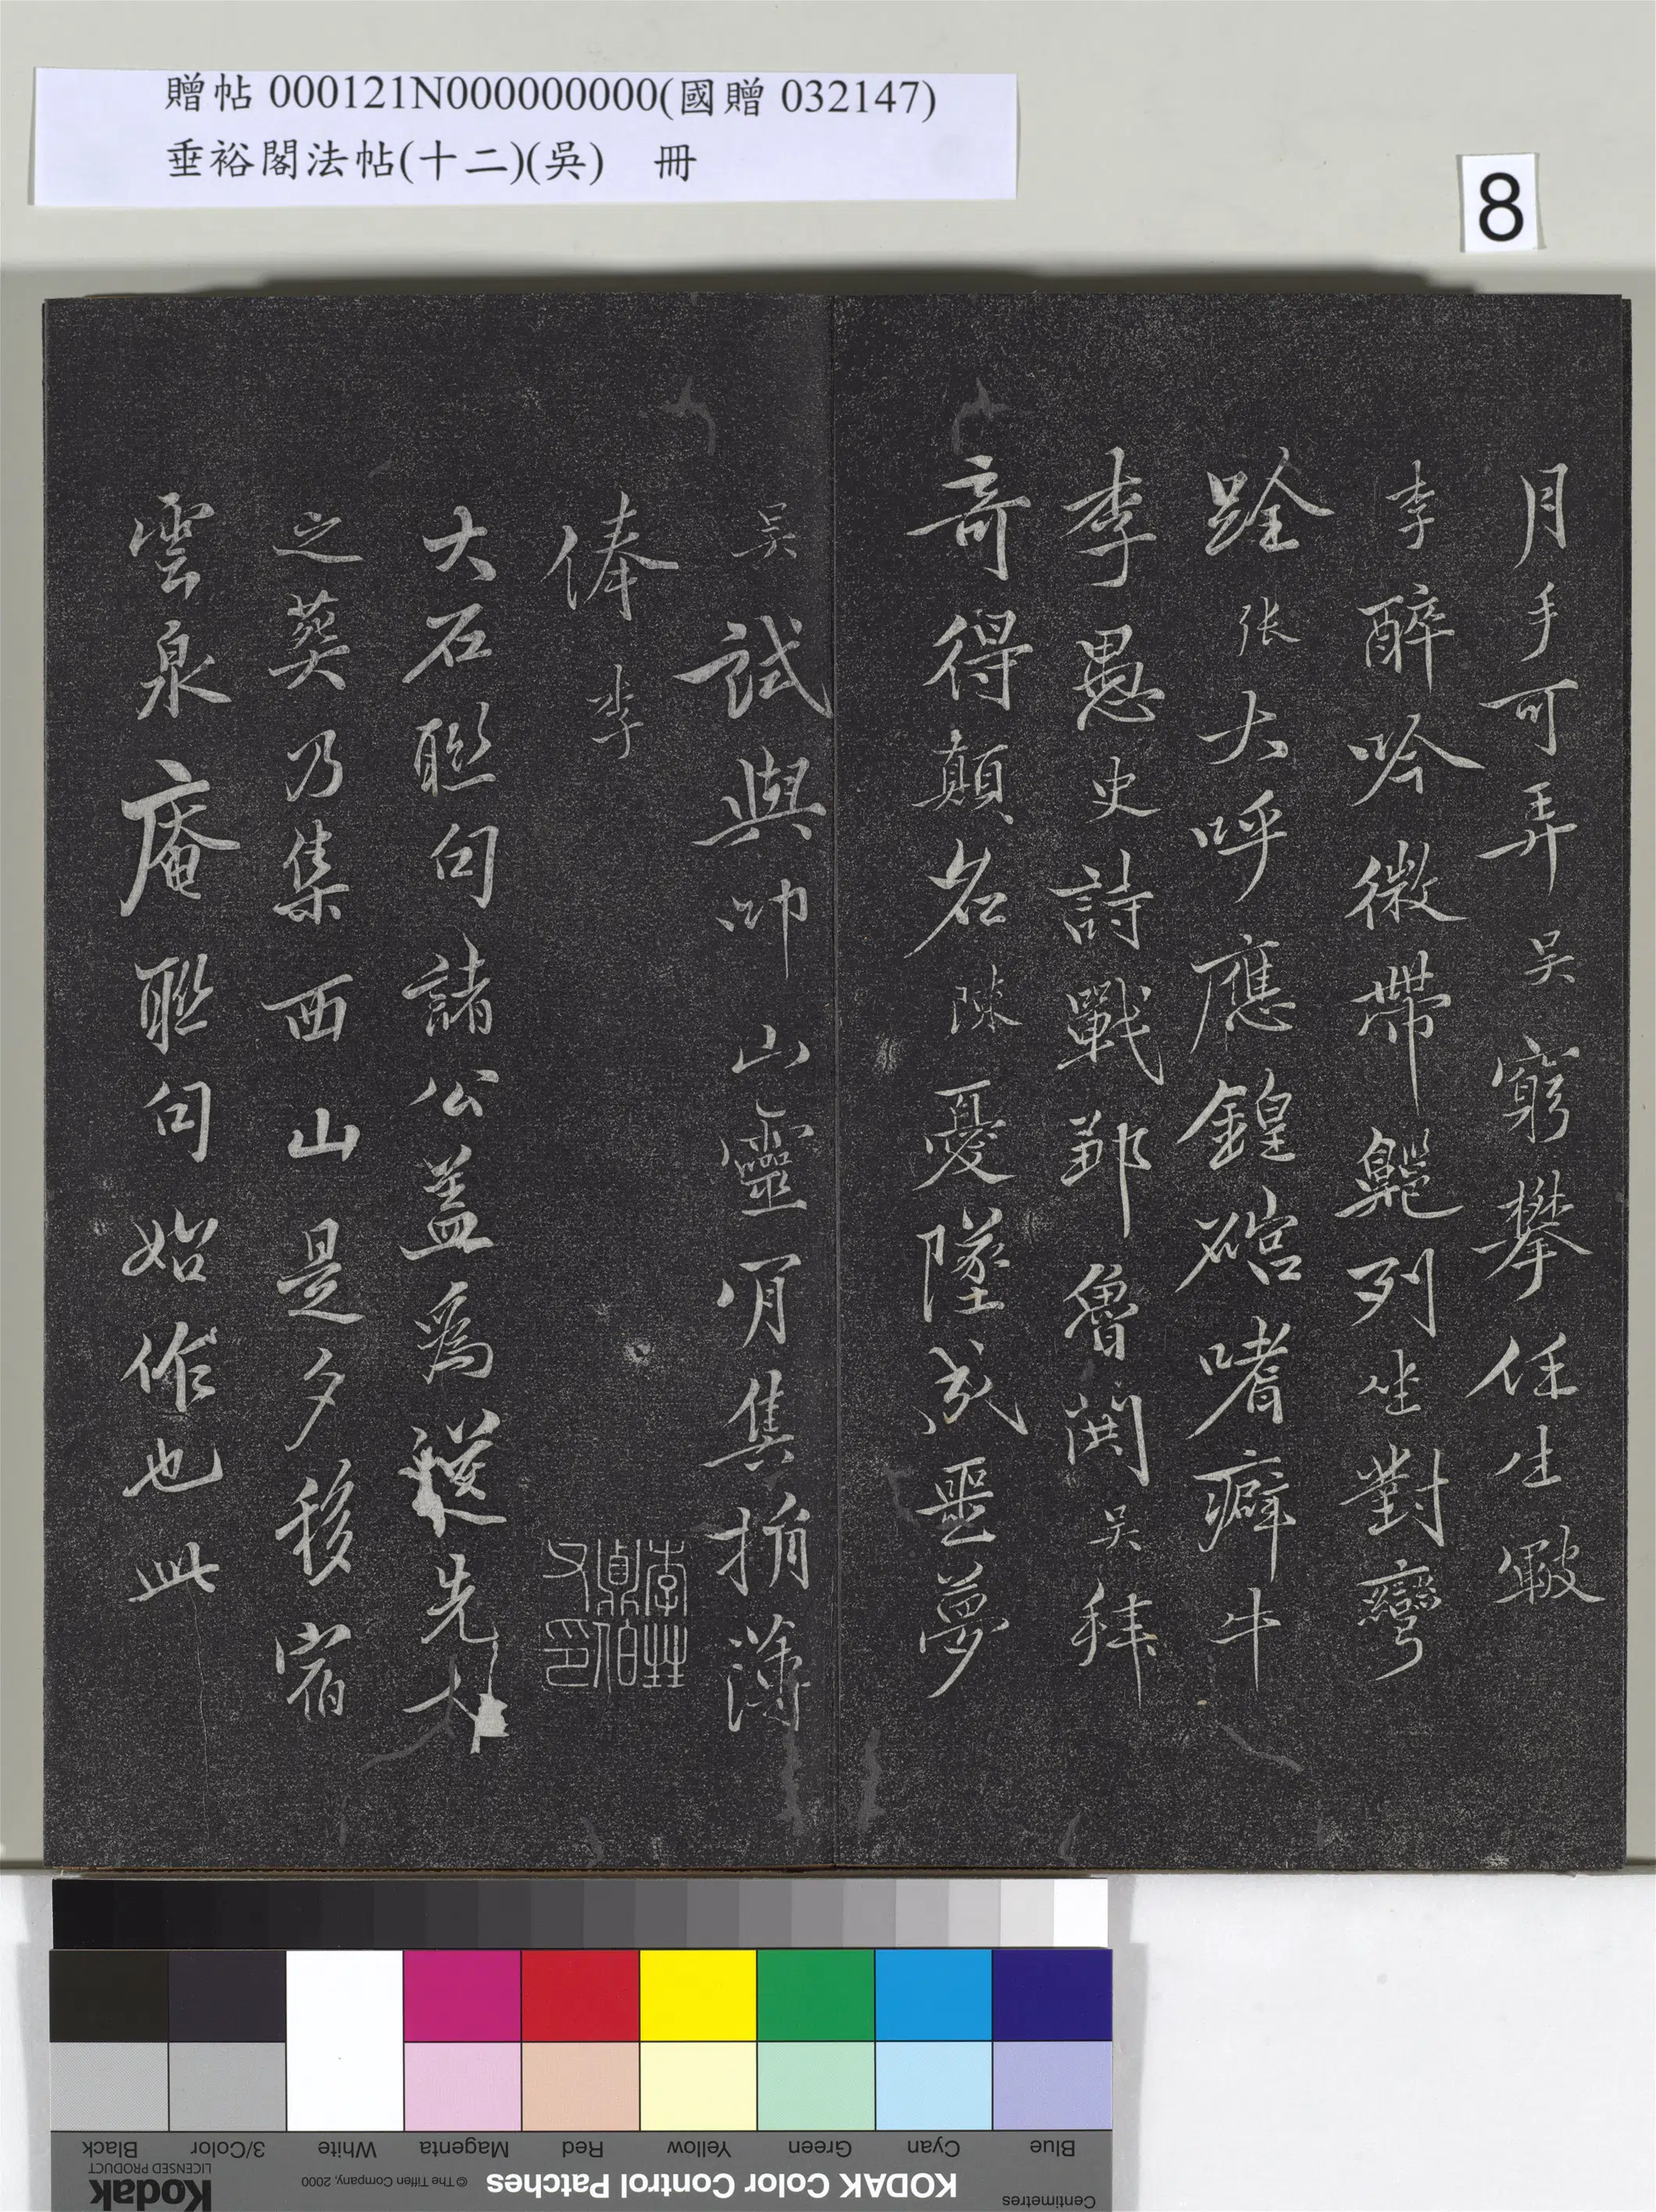 贈帖 000121N000000000(國贈 032147)
垂裕閣法帖(十二)(吳) 冊
8
月手可弄吳窮攀任生皸
李醉吟微帶齆列坐對彎
跧张大呼應鍠硞嗜癖牛
李愚史詩戰鄒魯鬨吳拜
奇得顛名陳憂墜成噩夢
吳試與叩山靈有集捐薄
俸李
大石聯句諸公蓋為從先大
之葬乃集西山是夕移宿
雲泉庵聯句始作也此
李甡
鼎伯
父印
Black
3/Color
White
Magenta
Red
Yellow
Green
Cyan
Blue
Kodak
LICENSED PRODUCT
© The Tiffen Company, 2000
KODAK Color Control Patches
Centimetres